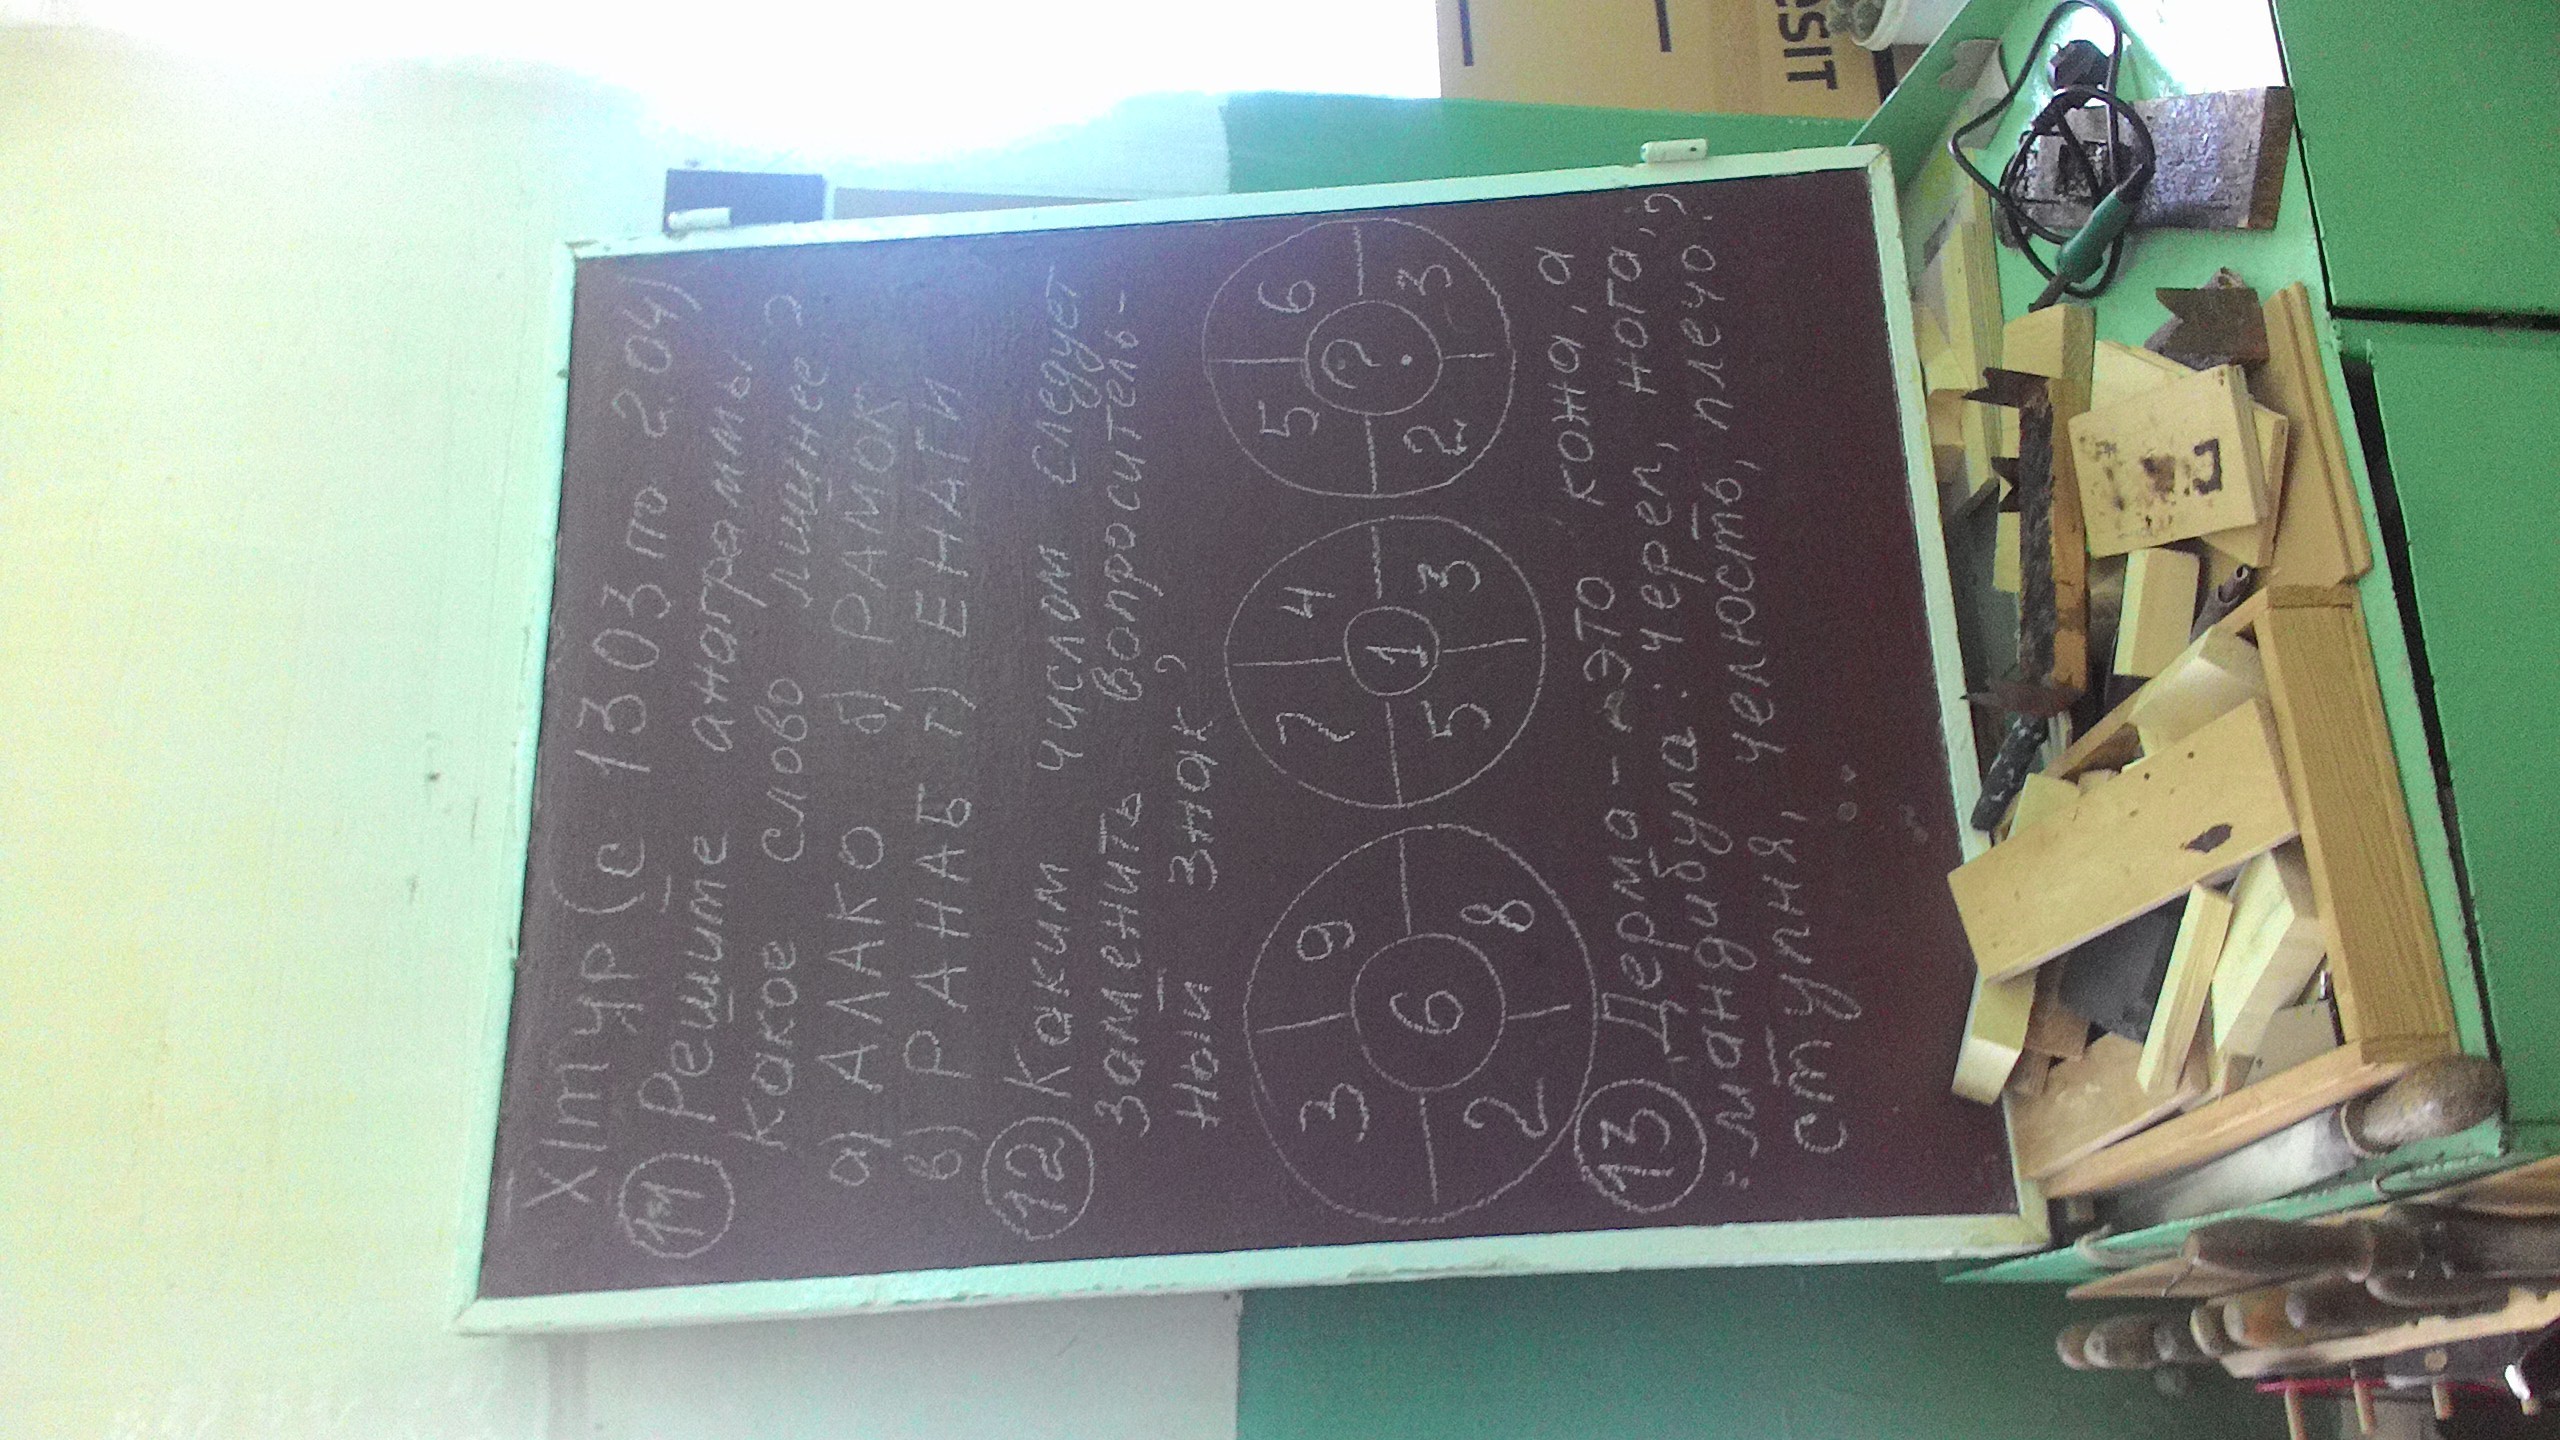 XI тур (с 13 03 по 2.04)
11 Решите анаграммы
какое слово лишнее?
а) АЛАКО б) РАМОК
в) РАНАБ г) ЕНАГИ
12 Каким числом следует
заменить вопроситель-
ный знак?
3 9
6
2 8
7 4
1
5 3
5 6
?
2 3
13 Дерма - это кожа, а
мандибула: череп, нога,
ступня, челюсть, плечо?
SIT